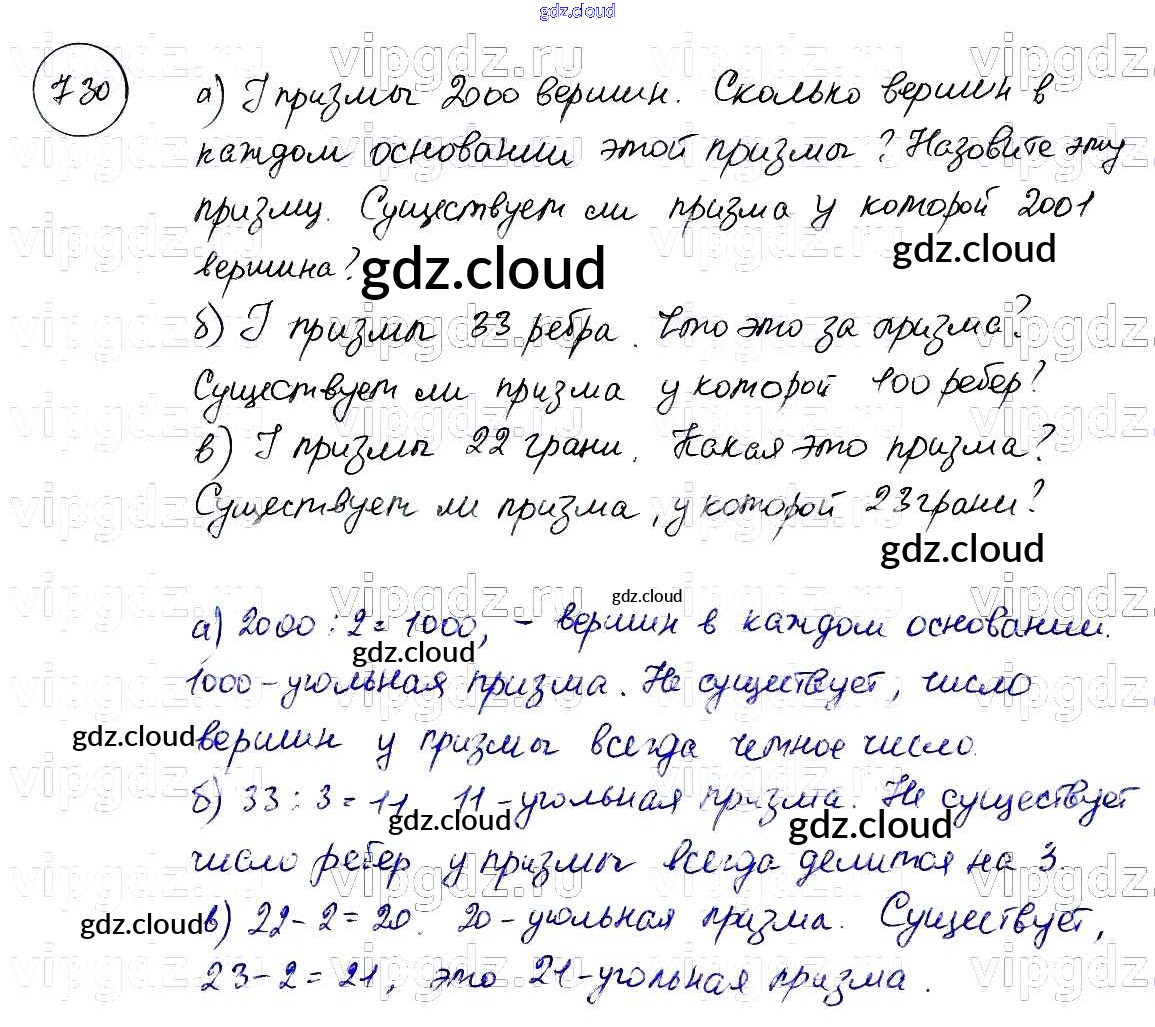 gdz.cloud
730
а) У призмы 2000 вершин. Сколько вершин в
каждом основании этой призмы? Назовите эту
призму. Существует ли призма у которой 2001
gdz.cloud
вершина? gdz.cloud
б) У призмы 33 ребра. Что это за призма?
Существует ли призма у которой 100 ребер?
в) У призмы 22 грани. Какая это призма?
Существует ли призма, у которой 23 грани?
gdz.cloud
gdz.cloud
а) 2000 : 2 = 1000, - вершин в каждом основании.
gdz.cloud
1000-угольная призма. Не существует, число
gdz.cloud вершин у призмы всегда четное число.
б) 33 : 3 = 11, 11-угольная призма. Не существует
gdz.cloud gdz.cloud
число ребер у призмы всегда делится на 3.
gdz.cloud в) 22-2=20. 20-угольная призма. Существует,
23-2=21, это 21-угольная призма.
vipgdz.ru